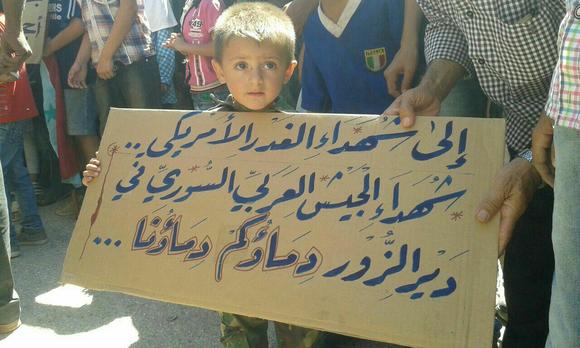 إلى شهداء الغدر الأمريكي..
شهداء الجيش العربي السوري في
دير الزور دماؤكم دماؤنا...